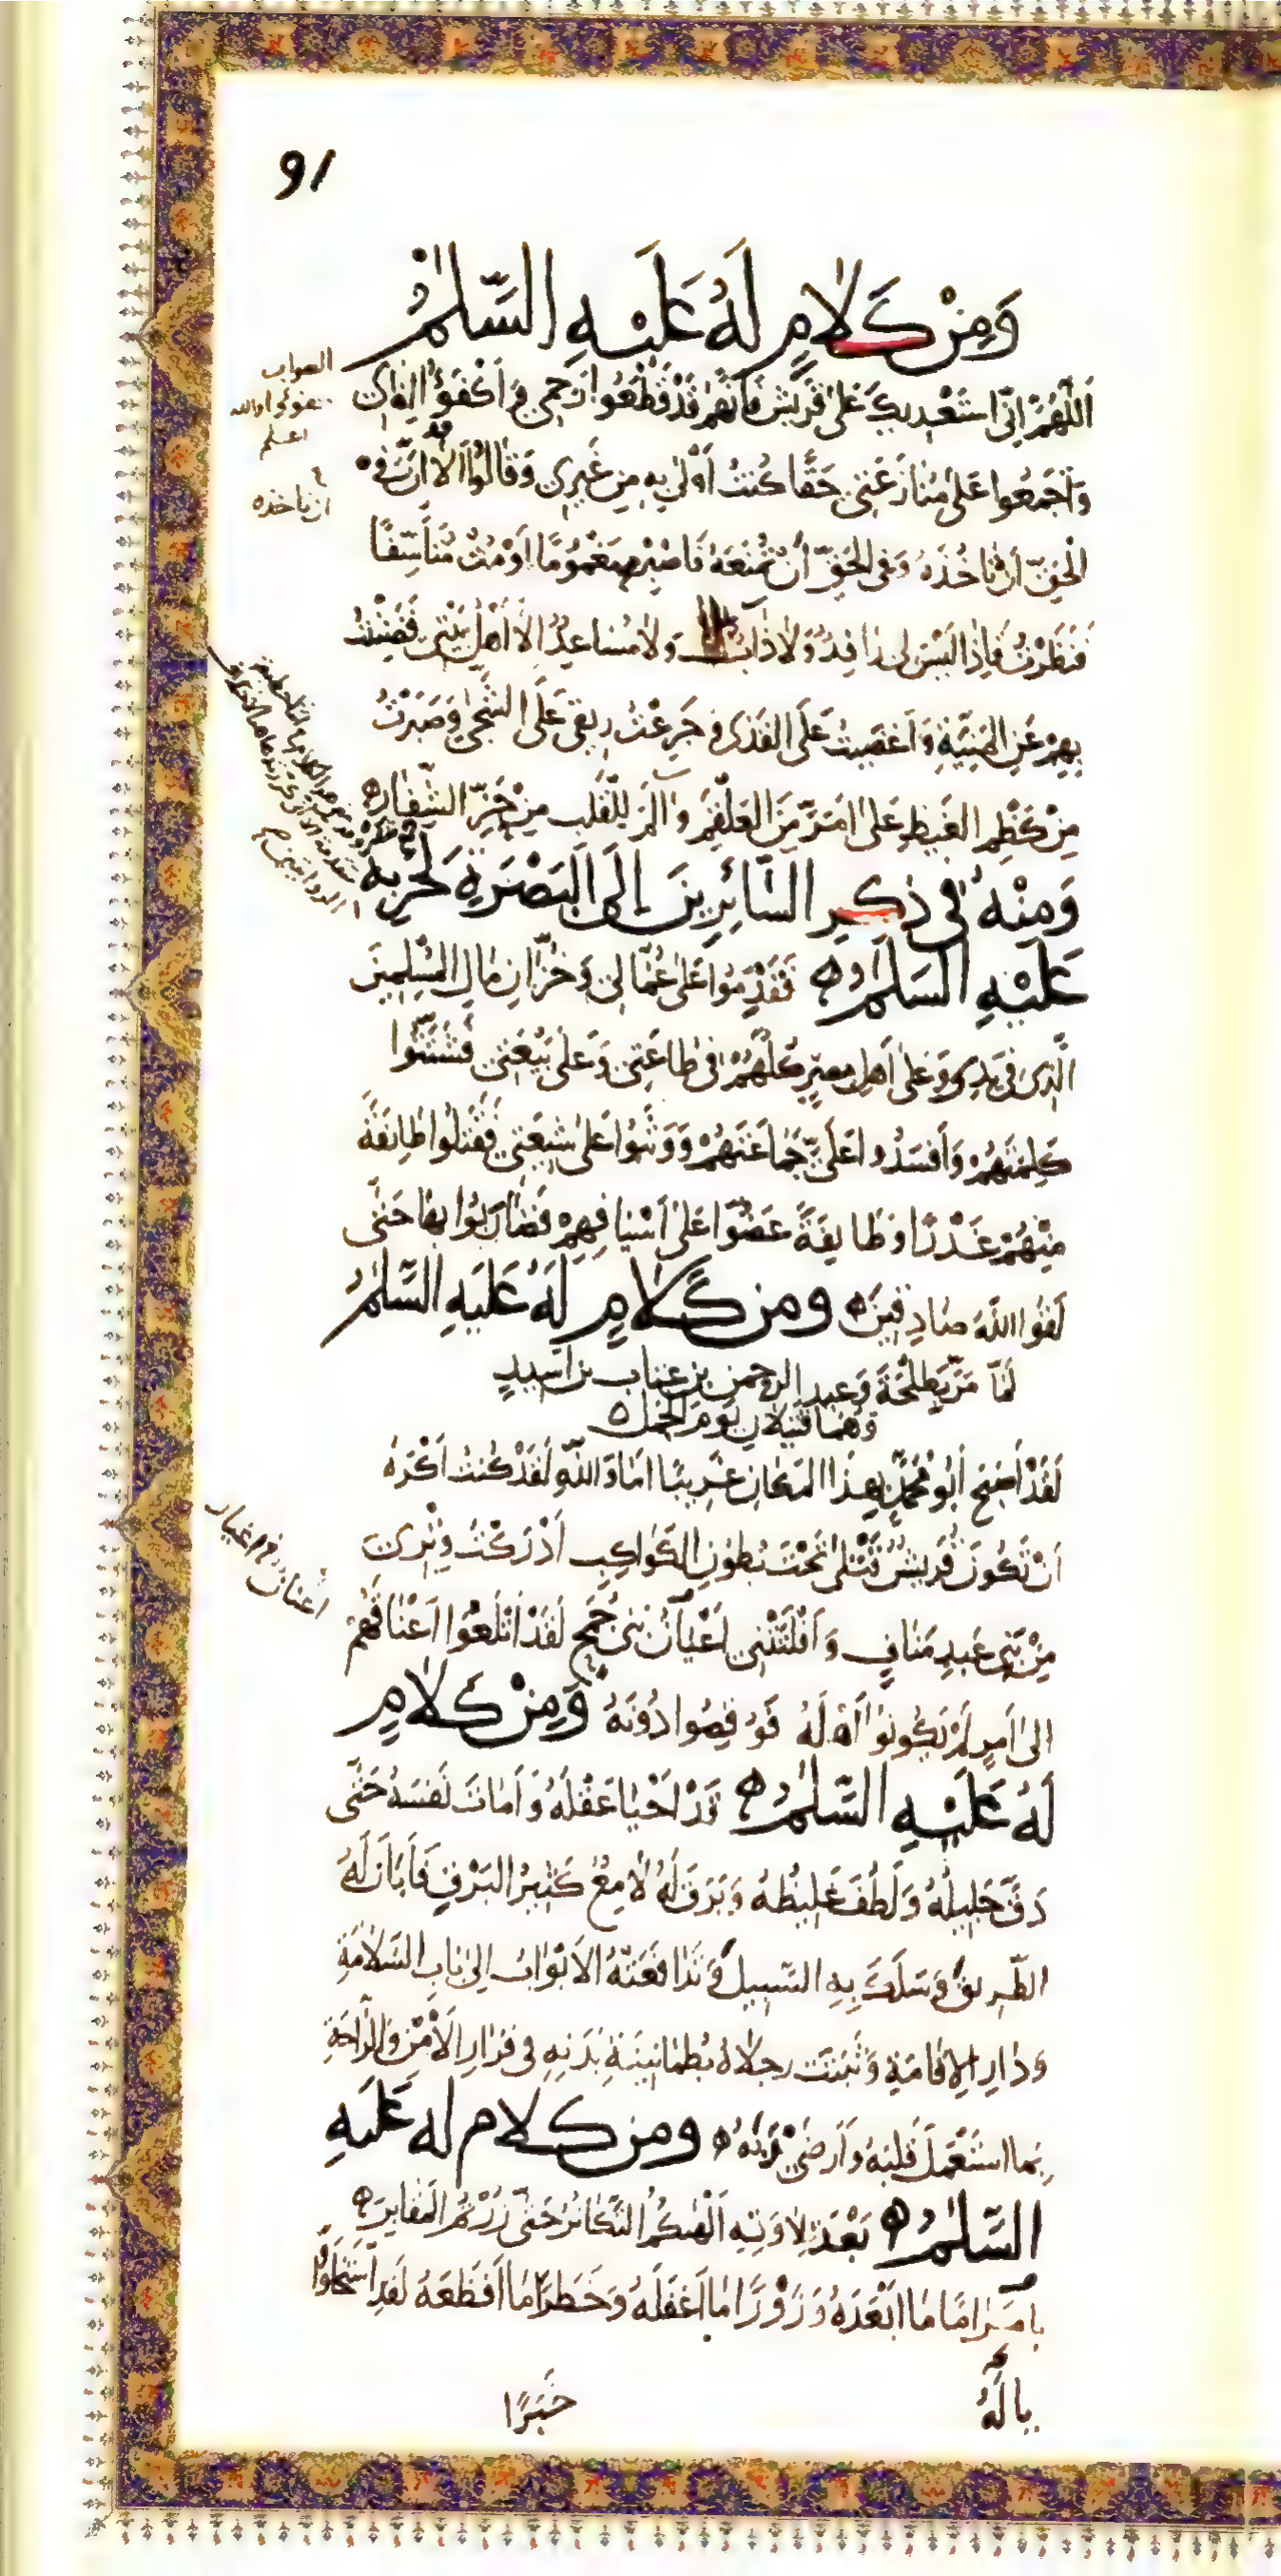 91
وَمِنْ كَلامٍ لَهُ عَلَيْهِ السَّلٰمُ
اَللّٰهُمَّ اِنّى اسْتَعْدِيكَ عَلىٰ قُرَيْشٍ فَاِنَّهُمْ قَدْ قَطَعُوا رَحِمِى وَ اَكْفَؤُا اِنَائِى
وَاَجْمَعُوا عَلىٰ مُنَازَعَتِى حَقًّا كُنْتُ اَوْلىٰ بِهِ مِنْ غَيْرِى وَقَالُوا اَلاٰ اِنَّ فِى
الْحَقِّ اَنْ تَاخُذَهُ وَفِى الْحَقِّ اَنْ تُمْنَعَهُ فَاصْبِرْ مَغْمُومًا اَوْ مُتْ مُتَاَسِّفًا
فَنَظَرْتُ فَاِذَا لَيْسَ لِى رَافِدٌ وَلاٰ ذَابٌّ وَلاٰ مُسَاعِدٌ اِلاّٰ اَهْلُ بَيْتِى فَضَنِنْتُ
بِهِمْ عَنِ الْمَنِيَّةِ وَ اَغْضَيْتُ عَلَى الْقَذىٰ وَ جَرِعْتُ رِيقِى عَلَى الشَّجىٰ وَصَبَرْتُ
مِنْ كَظْمِ الْغَيْظِ عَلىٰ اَمَرَّ مِنَ الْعَلْقَمِ وَاٰلَمَ لِلْقَلْبِ مِنْ حَزِّ الشِّفَارِ
وَمِنْهُ فِى ذِكْرِ السَّائِرِينَ اِلَى الْبَصْرَةِ لِحَرْبِهِ
عَلَيْهِ السَّلَٰمُ فَقَدِمُوا عَلىٰ عُمَّالِى وَخُزَّانِ مَالِ الْمُسْلِمِينَ
الَّذِى فِى يَدِى وَعَلىٰ اَهْلِ مِصْرٍ كُلُّهُمْ فِى طَاعَتِى وَعَلىٰ بَيْعَتِى فَشَتَّتُوا
كَلِمَتَهُمْ وَاَفْسَدُوا عَلَىَّ جَمَاعَتَهُمْ وَوَثَبُوا عَلىٰ شِيعَتِى فَقَتَلُوا طَائِفَةً
مِنْهُمْ غَدْرًا وَ طَايِفَةً عَضُّوا عَلىٰ اَسْيَافِهِمْ فَضَارَبُوا بِهَا حَتّٰى
لَقُوا اللّٰهَ صَادِقِينَ وَمِن كَلَامٍ لَهُ عَلَيْهِ السَّلٰمُ
لَمّا مَرَّ بِطَلْحَةَ وَعبدِ الرحمن بن عتاب بن اَسِيدٍ
وَهُمَا قَتِيلَانِ يَومَ الْجَمَلِ
لَقَدْ اَصْبَحَ اَبُو مُحَمَّدٍ بِهٰذَا الْمَكَانِ غَرِيبًا اَمَا وَ اللّٰهِ لَقَدْ كُنْتُ اَكْرَهُ
اَنْ تَكُونَ قُرَيْشٌ قَتْلىٰ تَحْتَ بُطُونِ الْكَوَاكِبِ اَدْرَكْتُ وِتْرِى
مِنْ بَنِى عَبدِ مَنَافٍ وَ اَفْلَتَتْنِى اَعْيَانُ بَنِى جُمَحٍ لَقَدْ اَتْلَعُوا اَعْنَاقَهُمْ
الىٰ اَمْرٍ لَمْ يَكُونُوا اَهْلَهُ فَوُقِصُوا دُونَهُ وَمِنْ كَلَامٍ
لَهُ عَلَيْهِ السَّلٰمُ قَدْ اَحْيَا عَقْلَهُ وَ اَمَاتَ نَفْسَهُ حَتّٰى
دَقَّ جَلِيلُهُ وَلَطُفَ غَلِيظُهُ وَبَرَقَ لَهُ لاٰمِعٌ كَثِيرُ الْبَرْقِ فَاَبَانَ لَهُ
الطَّرِيقَ وَسَلَكَ بِهِ السَّبِيلَ وَ تَدَافَعَتْهُ الْاَبْوَابُ اِلىٰ بَابِ السَّلاٰمَةِ
وَدَارِ الْاِقَامَةِ وَ ثَبَتَتْ رِجْلاٰهُ بِطُمَانِينَةِ بَدَنِهِ فِى قَرَارِ الْاَمْنِ وَالرَّاحَةِ
بِمَا اسْتَعْمَلَ قَلْبَهُ وَاَرْضىٰ رَبَّهُ وَمِن كَلَام لَهُ عَلَيهِ
السَّلٰمُ بَعْدَ تِلاٰوَتِهِ اَلْهٰيكُمُ التَّكَاثُرُ حَتّٰى زُرْتُمُ الْمَقَابِرَ
يَا مَرَامًا مَا اَبْعَدَهُ وَزَوْرًا مَا اَغْفَلَهُ وَخَطَرًا مَا اَفْظَعَهُ لَقَدِ اسْتَخْلَوْا
الصواب
واالله
اعلم
ان ناخذه
اغيار